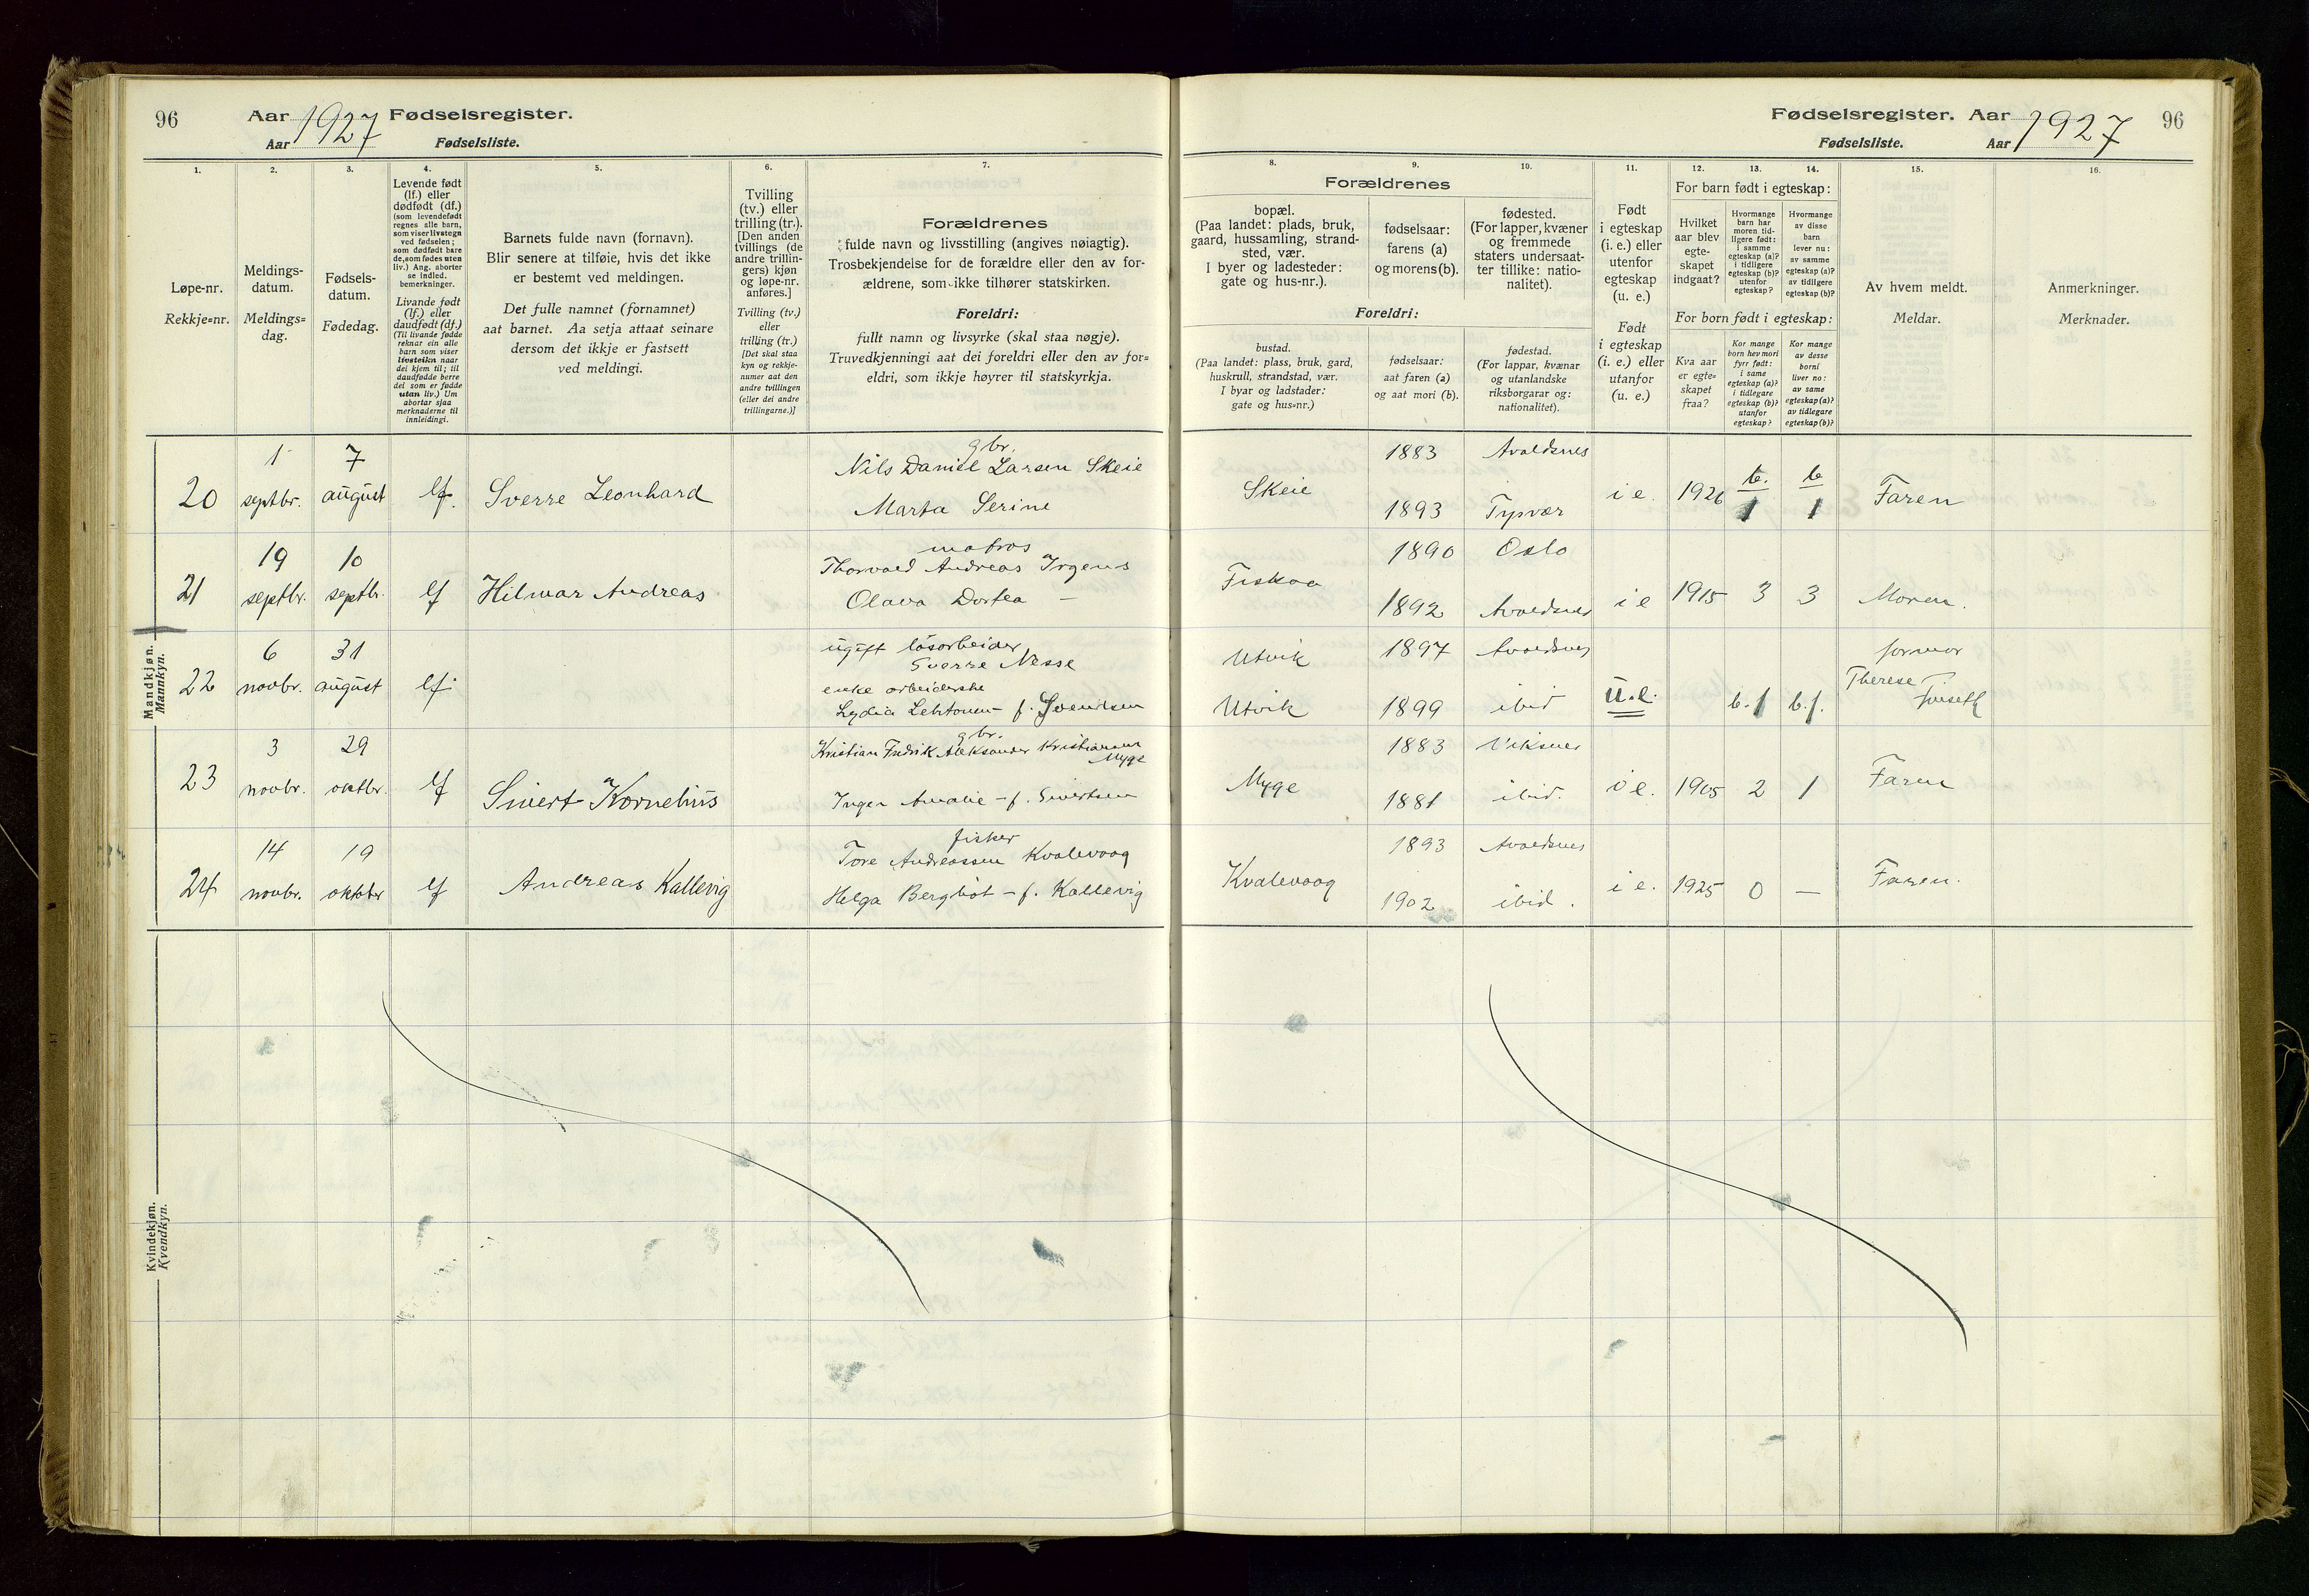 96 Aar 1927 Fødselsregister.
Aar Fødselsliste.
1. 2. 3. 4. 5. 6. 7.
Løpe-nr.
Rekkje=nr.
Meldings-
datum.
Meldings=
dag.
Fødsels-
datum.
Fødedag.
Levende født
(lf.) eller
dødfødt (df.)
(som levendefødt
regnes alle barn,
som viser livstegn
ved fødselen;
som dødfødt bare
de, som fødes uten
liv.) Ang. aborter
se indled.
bemerkninger.
Livande født
(lf.) eller
daudfødt (df.)
(Til livande fødde
reknar ein alle
barn som viser
livsteikn naar
dei kjem til; til
daudfødde berre
dei som er fødde
utan liv.) Um
abortar sjaa
merknaderne til
innleidingi.
Barnets fulde navn (fornavn).
Blir senere at tilføie, hvis det ikke
er bestemt ved meldingen.
Det fulle namnet (fornamnet)
aat barnet. Aa setja attaat seinare
dersom det ikkje er fastsett
ved meldingi.
Tvilling
(tv.) eller
trilling (tr.).
[Den anden
tvillings (de
andre trillin-
gers) kjøn
og løpe-nr.
anføres.]
Tvilling (tv.)
eller
trilling (tr.)
[Det skal staa
kyn og rekkje-
numer aat den
andre tvillingen
(eller dei andre
trillingarne.)]
Forældrenes
fulde navn og livsstilling (angives nøiagtig).
Trosbekjendelse for de forældre eller den av for-
ældrene, som ikke tilhører statskirken.
Foreldri:
fullt namn og livsyrke (skal staa nøgje).
Truvedkjenningi aat dei foreldri eller den av for=
eldri, som ikkje høyrer til statskyrkja.
Mandkjøn.
Mannkyn.
20 1 septbr. 7 august lf. Sverre Leonhard
gbr.
Nils Daniel Larsen Skeie
Marta Serine
21 19 septbr. 10 septbr. lf Hilmar Andreas
matros
Thorvald Andreas Irgens
Olava Dortea —
22 6 novbr. 31 august lf.
ugift løsarbeider
Sverre Nesse
enke arbeiderske
Lydia Lehtonen f. Svendsen
23 3 novbr. 29 oktbr. lf Sivert Kornelius
gbr.
Kristian Fredrik Aleksander Kristiansen
Myge
Inger Amalie - f. Sivertsen
24 14 novbr. 19 oktober lf Andreas Kallevig
fisker
Tore Andreassen Kvalevaag
Helga Bergliot - f. Kallevig
Kvindekjøn.
Kvendkyn.
Fødselsregister. Aar 1927 96
Fødselsliste. Aar
8. 9. 10. 11. 12. 13. 14. 15. 16.
Forældrenes
bopæl.
(Paa landet: plads, bruk,
gaard, hussamling, strand-
sted, vær.
I byer og ladesteder:
gate og hus-nr.).
fødselsaar:
farens (a)
og morens (b).
fødested.
(For lapper, kvæner
og fremmede
staters undersaat-
ter tillike: natio-
nalitet).
Foreldri:
bustad.
(Paa landet: plass, bruk, gard,
huskrull, strandstad, vær.
I byar og ladstader:
gate og hus=nr.)
fødselsaar:
aat faren (a)
og aat mori (b).
fødestad.
(For lappar, kvænar
og utanlandske
riksborgarar og:
nationalitet).
Født
i egteskap
(i. e.) eller
utenfor
egteskap
(u. e.)
Født
i egteskap
(i. e.) eller
utanfor
(u. e.)
For barn født i egteskap:
Hvilket
aar blev
egte-
skapet
indgaat?
Hvormange
barn har
moren tid-
ligere født:
i samme
egteskap (a)?
i tidligere
egteskap (b)?
utenfor
egteskap?
Hvormange
av disse
barn
lever nu:
av samme
egteskap (a)?
av tidligere
egteskap (b)?
For born født i egteskap:
Kva aar
er egte=
skapet
fraa?
Kor mange
born hev mori
fyrr født:
i same
egteskap (a)?
i tidlegare
egteskap (b)?
utanfor
egteskap?
Kor mange
av desse
borni
liver no:
av same
egteskap (a)?
av tidlegare
egteskap (b)?
Av hvem meldt.
Meldar.
Anmerkninger.
Merknader.
Skeie 1883 Avaldsnes
1893 Tysvær i e. 1926 b. 1 b 1 Faren
Fiskaa 1890 Oslo
1892 Avaldsnes i e 1915 3 3 Moren.
Utvik 1897 Avaldsnes
Utvik 1899 ibid u.e. b. 1 b. 1. formor
Therese
Myge 1883 Viksnes
1881 ibid. i e. 1905 2 1 Faren
Kvalevaag 1893 Avaldsnes
1902 ibid. i e. 1925 0 — Faren.